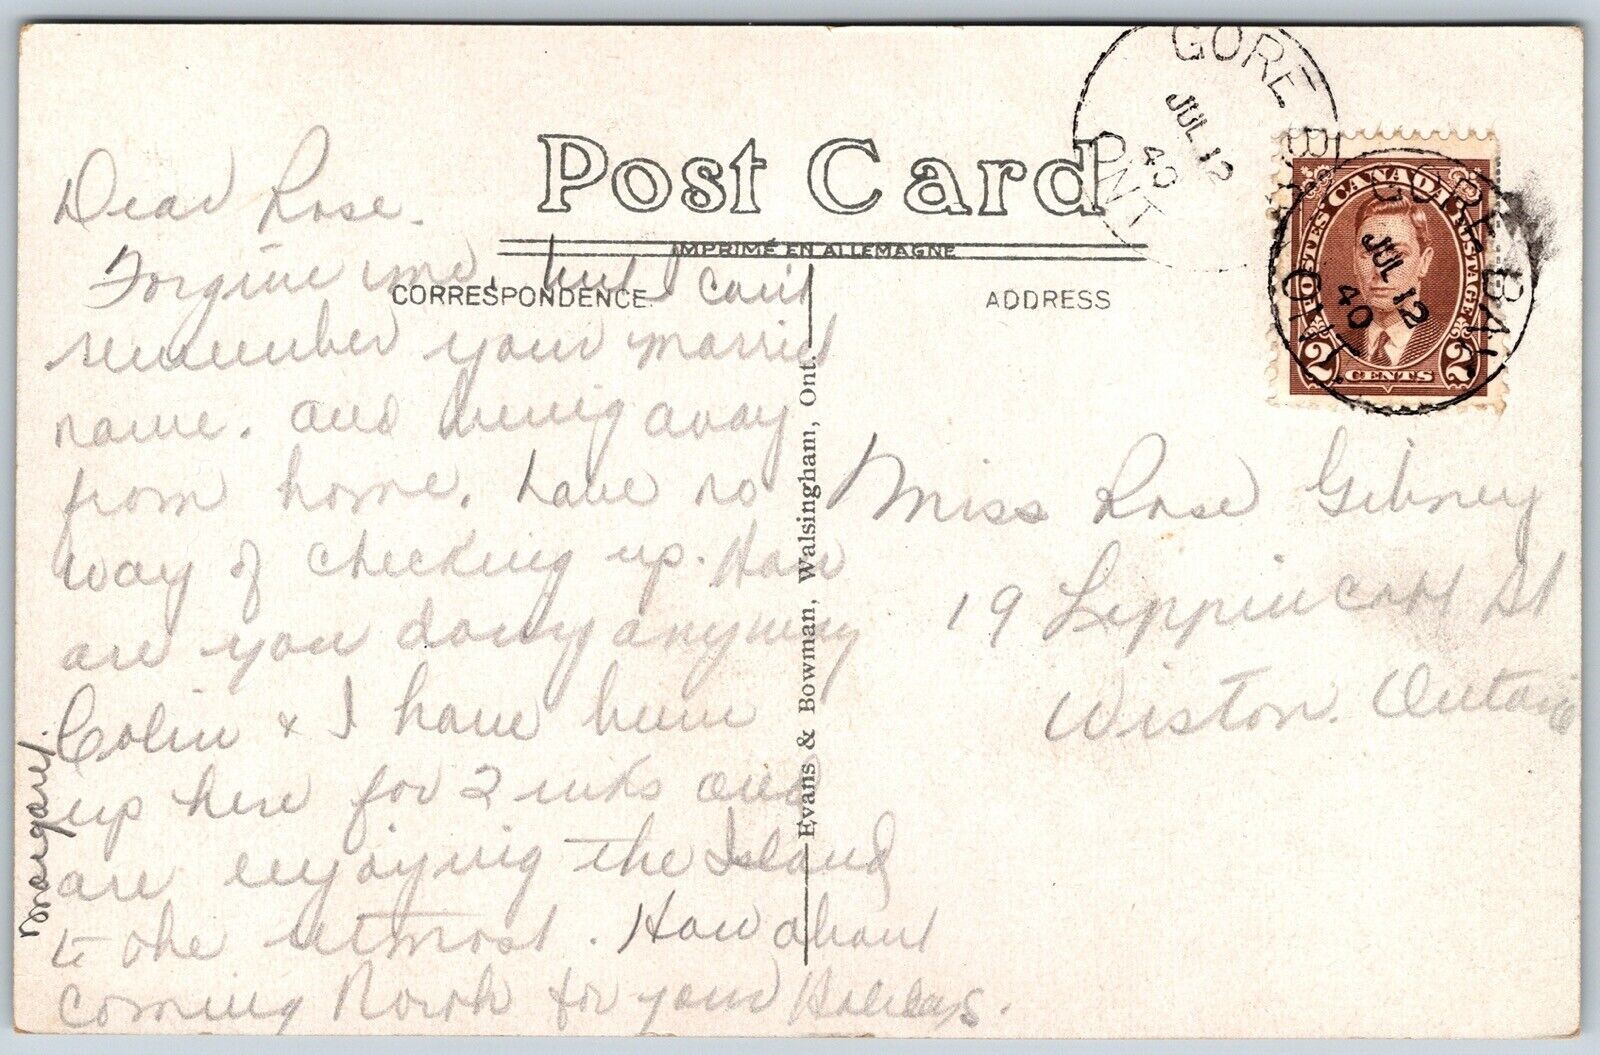 Post Card
IMPRIMÉ EN ALLEMAGNE
CORRESPONDENCE
ADDRESS
GORE BAY
JUL 12
40
ONT
GORE BAY
JUL 12
40
ONT.
POSTES CANADA POSTAGE
2 CENTS 2
Dear Rose.
Forgive me, but I can't
remember your married
name. and being away
from home, have no
way of checking up. How
are you doing anyway
Colin & I have been
up here for 2 wks and
are enjoying the Island
to the utmost. How about
coming North for your Holidays.
Margaret.
Evans & Bowman, Walsingham, Ont.
Miss Rose Gibney
19 Lippincott St
Wiston. Ontario